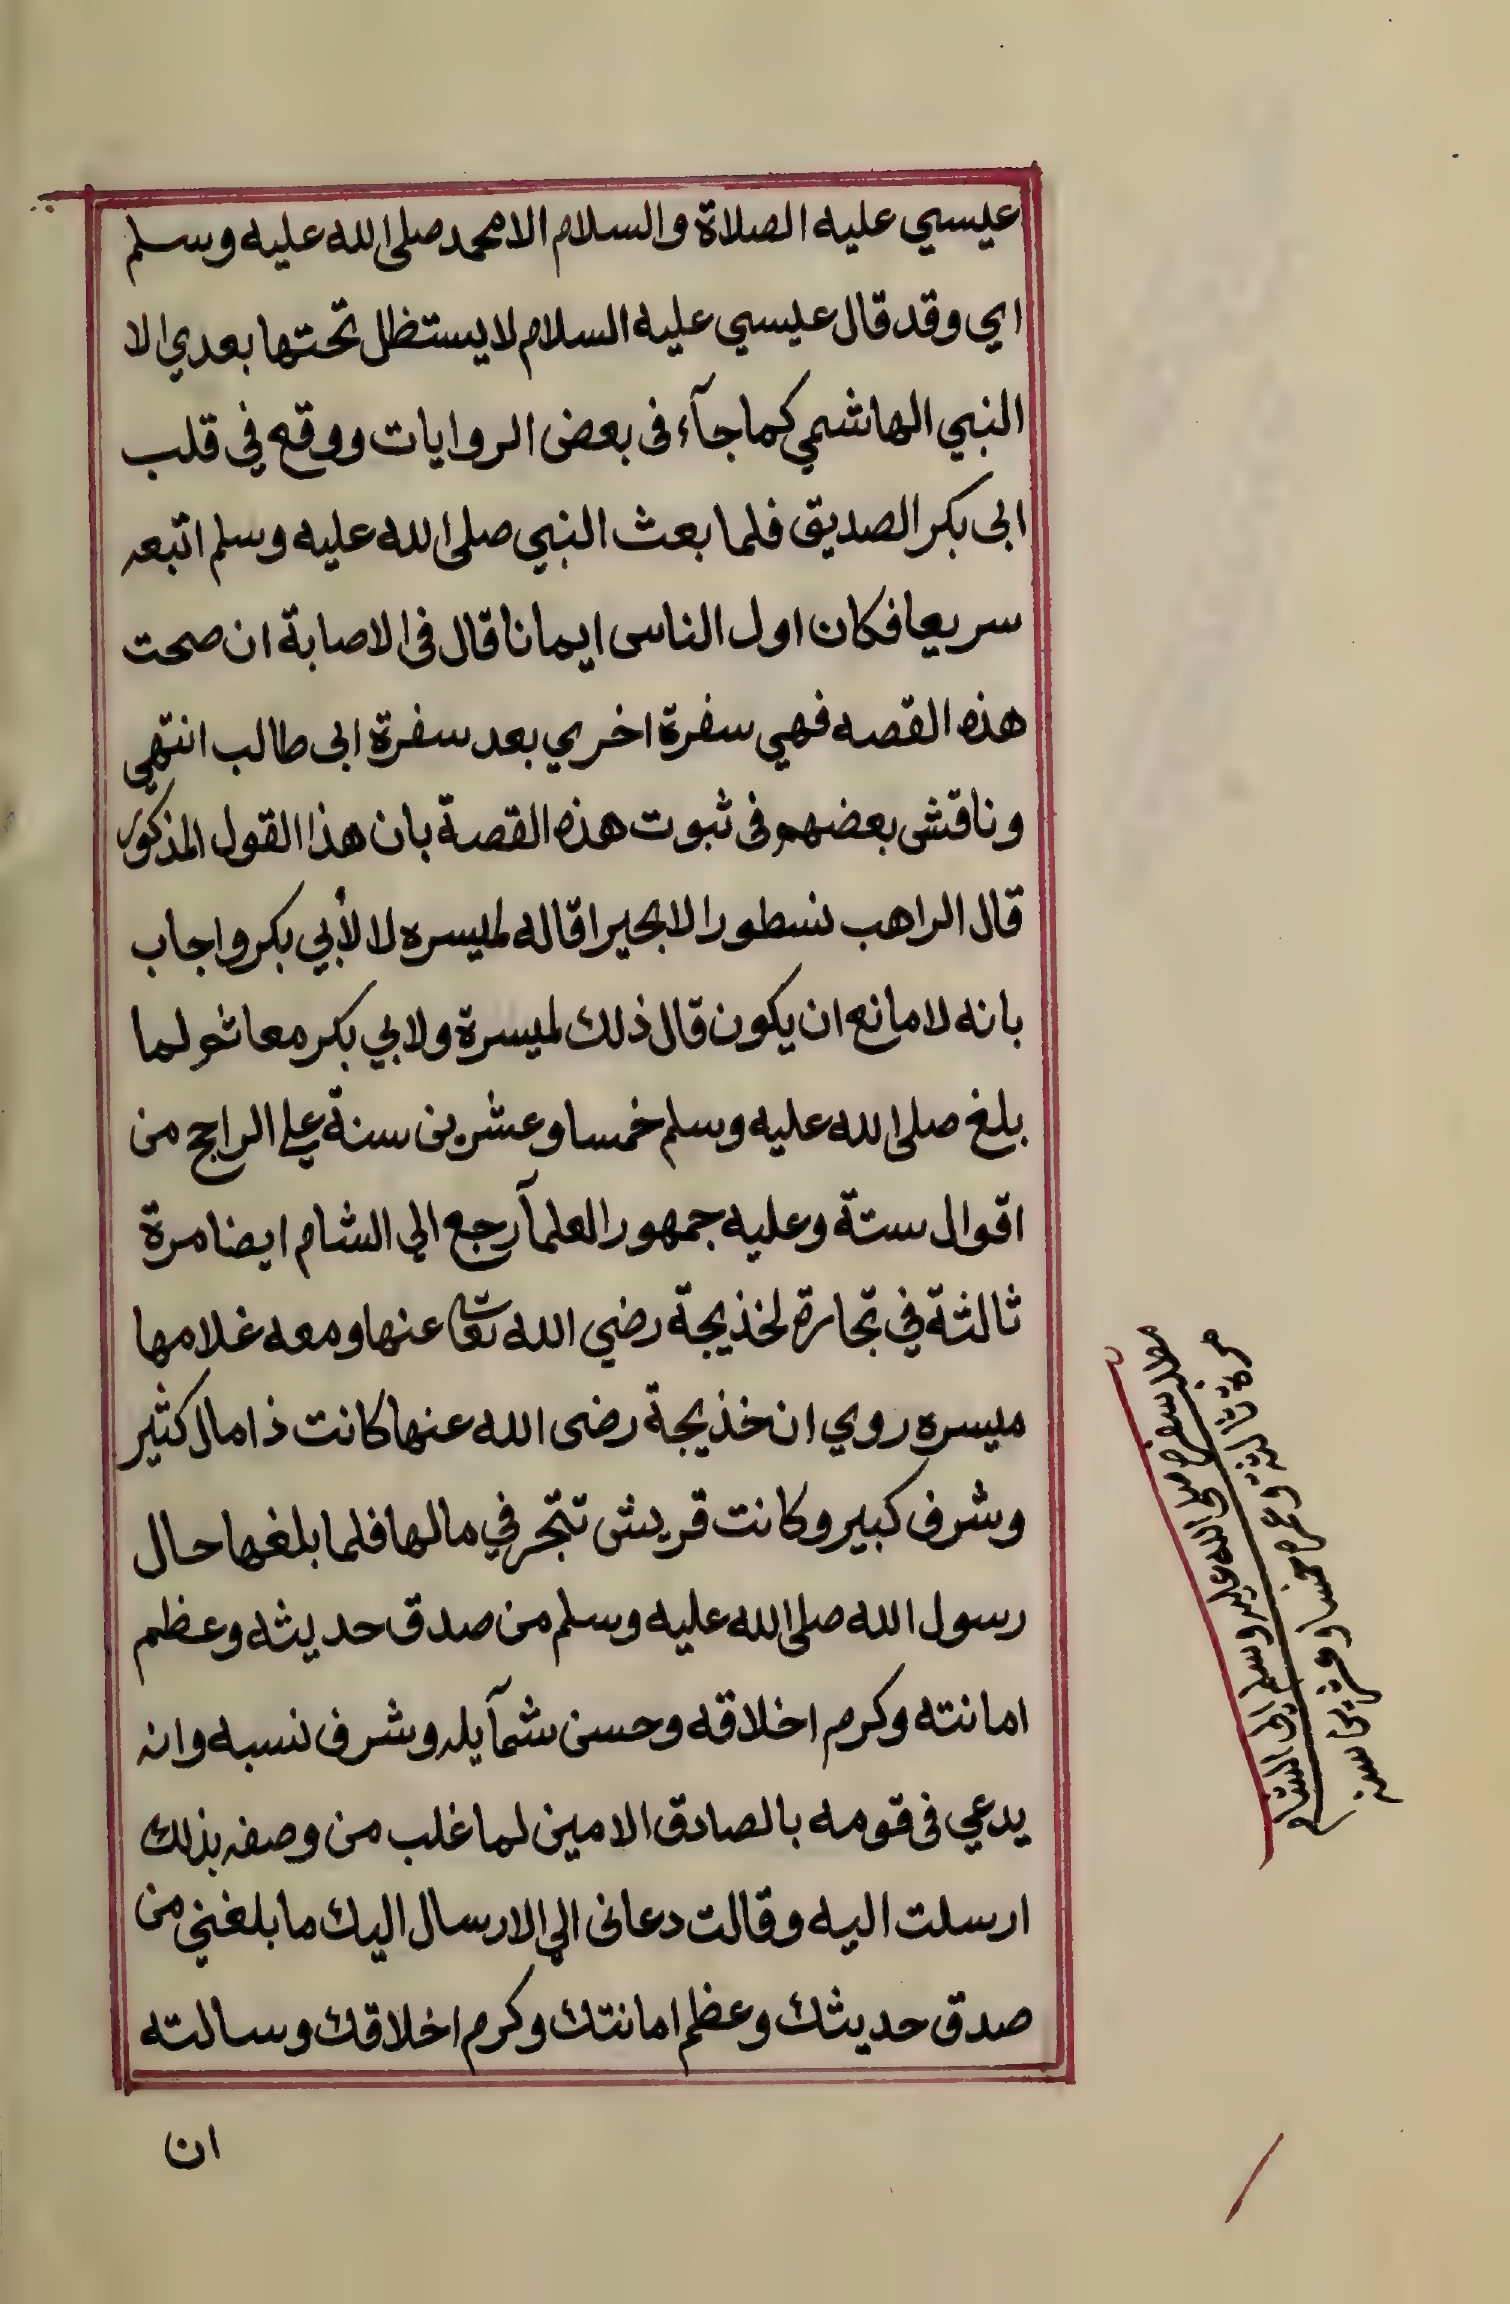 عيسي عليه الصلاة والسلام الا محمد صلى الله عليه وسلم
اي وقد قال عيسي عليه السلام لا يستظل تحتها بعدي الا
النبي الهاشمي كما جآء فى بعض الروايات ووقع في قلب
ابى بكر الصديق فلما بعث النبي صلى الله عليه وسلم اتبعه
سريعا فكان اول الناس ايمانا قال فى الاصابة ان صحت
هذه القصه فهي سفرة اخري بعد سفرة ابى طالب انتهي
وناقش بعضهم فى ثبوت هذه القصة بان هذا القول المذكور
قال الراهب نسطورا لا بحيرا قاله لميسره لا لأبي بكر واجاب
بانه لا مانع ان يكون قال ذلك لميسرة ولابي بكر معا ثم لما
بلغ صلى الله عليه وسلم خمسا وعشرين سنة علي الراجح من
اقوال ستة وعليه جمهور العلمآ رجع الي الشام ايضا مرة
ثالثة في تجارة لخذيجة رضي الله تعا عنها ومعه غلامها
ميسره روي ان خذيجة رضى الله عنها كانت ذا مال كثير
وشرف كبير وكانت قريش تتجر في مالها فلما بلغها حال
رسول الله صلى الله عليه وسلم من صدق حديثه وعظم
امانته وكرم اخلاقه وحسن شمآيله وشرف نسبه وانه
يدعي فى قومه بالصادق الامين لما غلب من وصفه بذلك
ارسلت اليه وقالت دعانى الي الارسال اليك ما بلغني من
صدق حديثك وعظم امانتك وكرم اخلاقك وسالته
ان
مطلب سفره صلى الله عليه وسلم الى الشام
مرة ثالثة وعمره خمسا وعشرين سنة